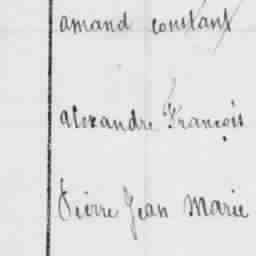 amand constant
alexandre François
Pierre Jean Marie